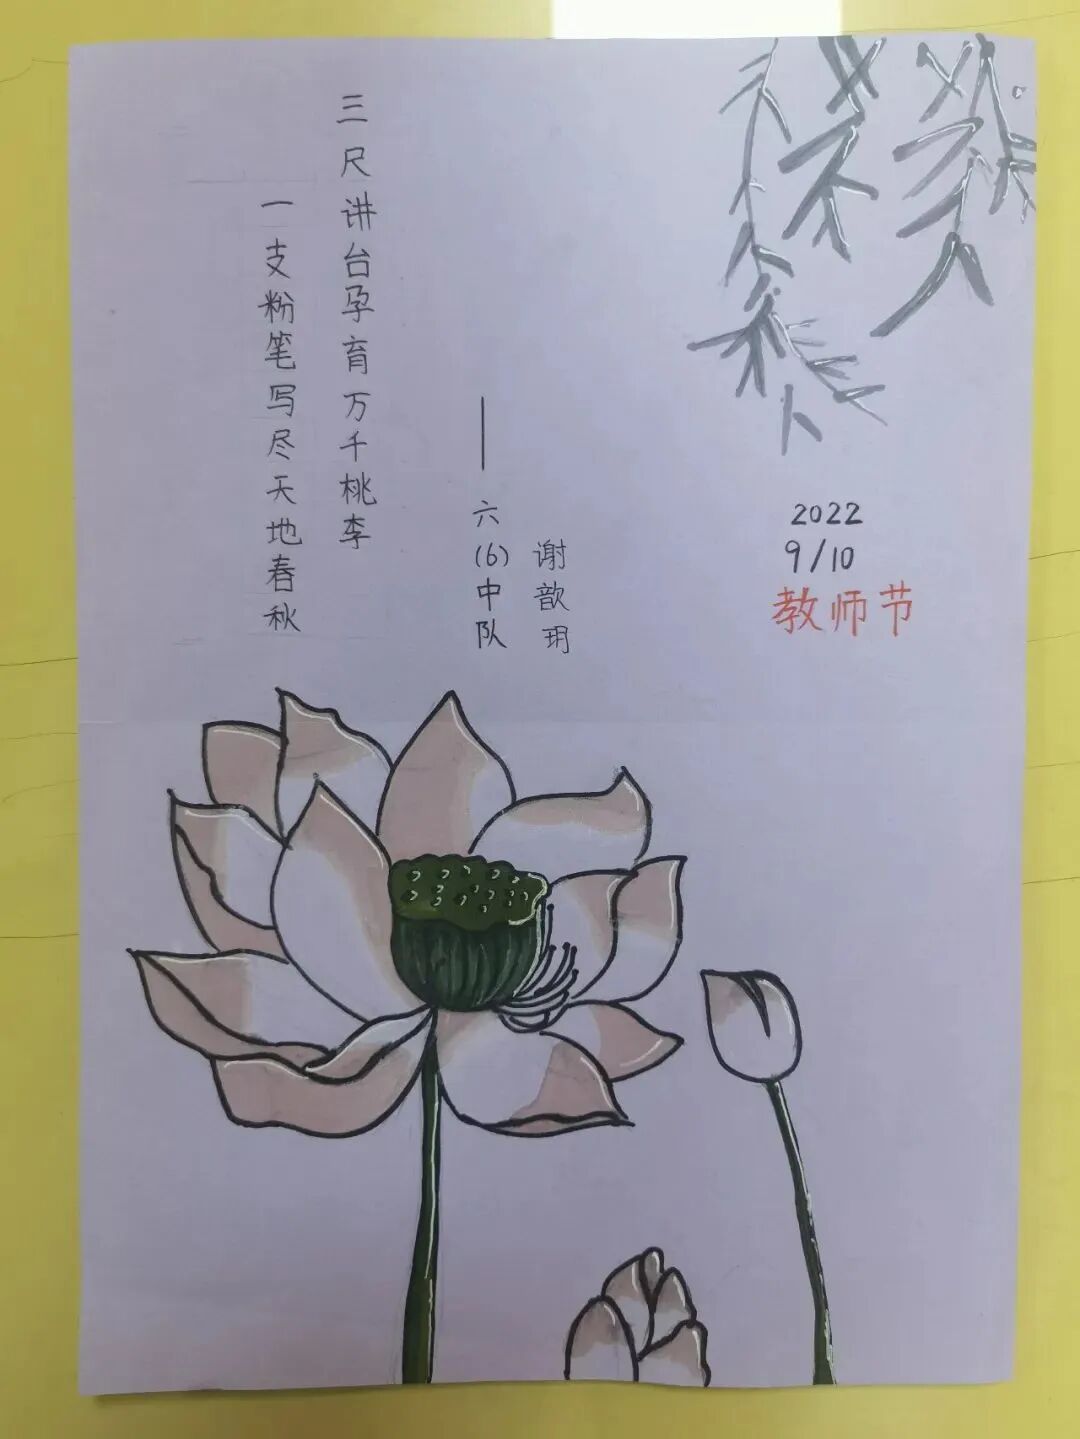 三尺讲台孕育万千桃李
一支粉笔写尽天地春秋
——六(6)中队
谢歆玥
2022
9/10
教师节